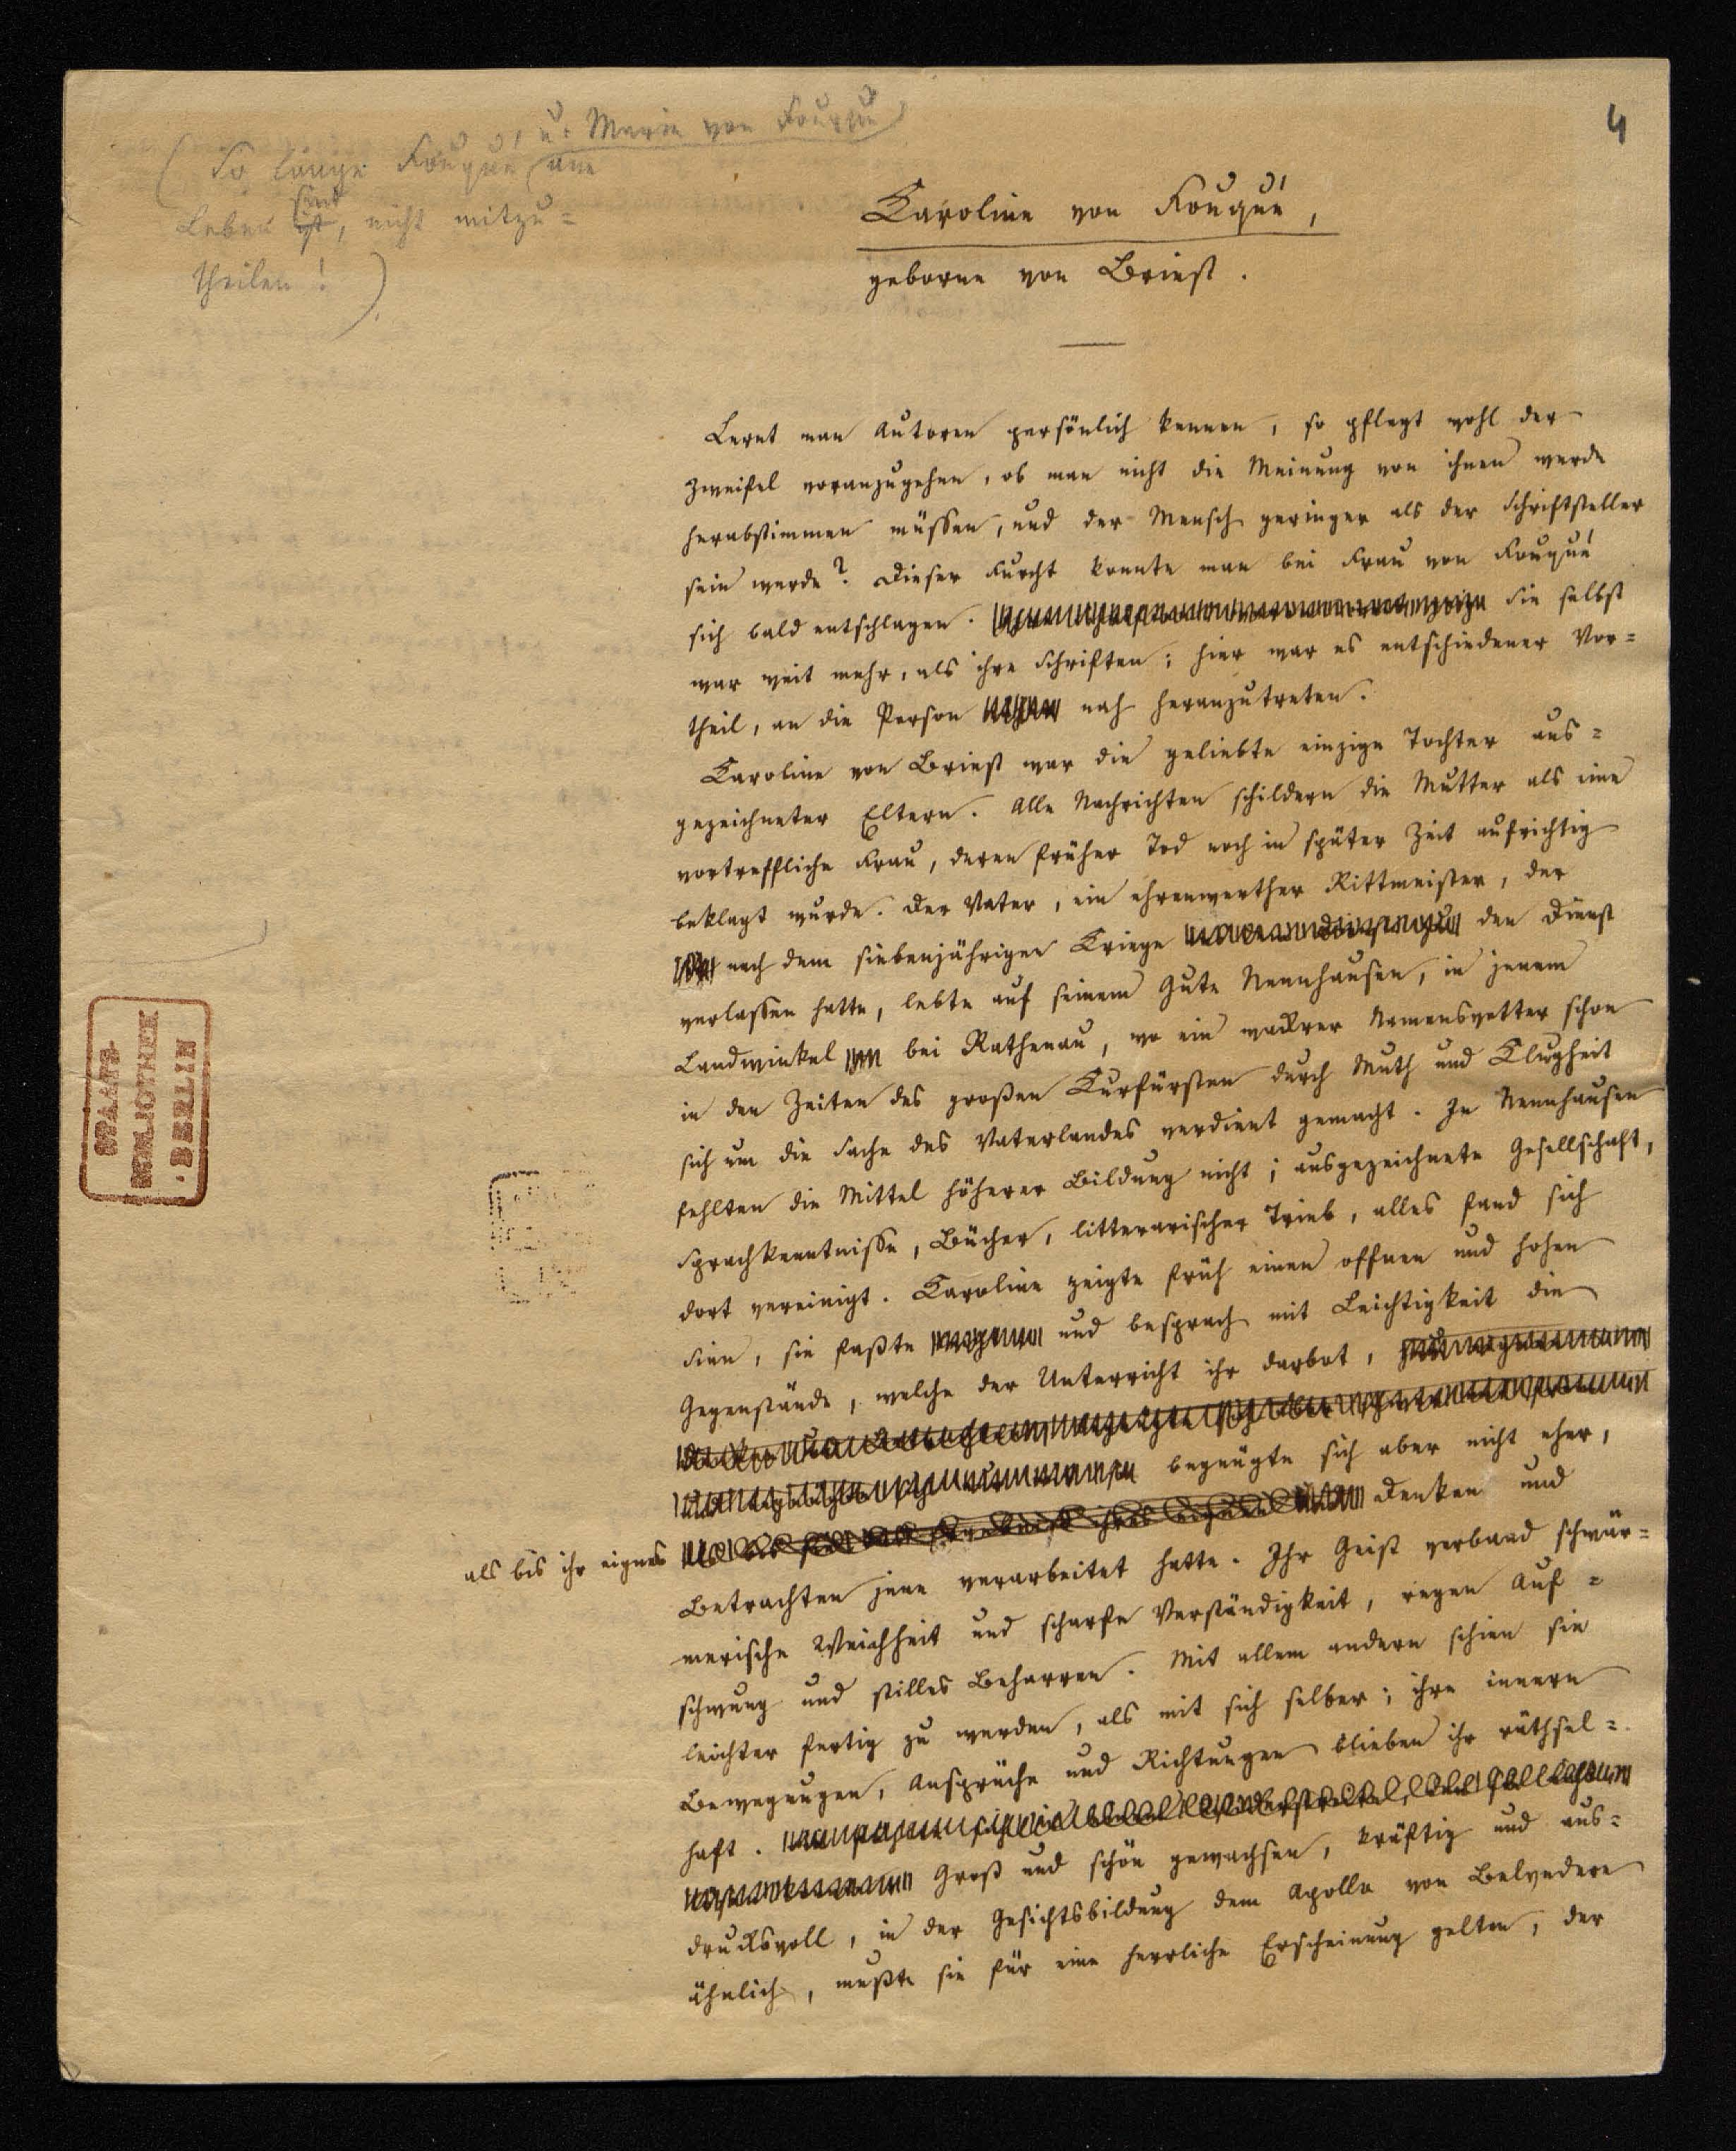 4
(So lange Fouqué u. Marie von Fouqué am
Leben ist sind, nicht mitzu=
theilen!)
Caroline von Fouqué,
geborne von Briest.
Lernt man Autoren persönlich kennen, so pflegt wohl der
Zweifel voranzugehen, ob man nicht die Meinung von ihnen werde
herabstimmen müssen, und der Mensch geringer als der Schriftsteller
sein werde? Dieser Furcht konnte man bei Frau von Fouqué
sich bald entschlagen. Sie selbst
war weit mehr, als ihre Schriften; hier war es entschiedener Vor=
theil, an die Person nah heranzutreten.
Caroline von Briest war die geliebte einzige Tochter aus=
gezeichneter Eltern. Alle Nachrichten schildern die Mutter als eine
vortreffliche Frau, deren früher Tod noch in später Zeit aufrichtig
beklagt wurde. Der Vater, ein ehrenwerther Rittmeister, der
nach dem siebenjährigen Kriege den Dienst
verlassen hatte, lebte auf seinem Gute Nennhausen, in jenem
Landwinkel bei Rathenau, wo ein wackrer Namensvetter schon
in den Zeiten des großen Kurfürsten durch Muth und Klugheit
sich um die Sache des Vaterlandes verdient gemacht. In Nennhausen
fehlten die Mittel höherer Bildung nicht; ausgezeichnete Gesellschaft,
Sprachkenntnisse, Bücher, litterarischer Trieb, alles fand sich
dort vereinigt. Caroline zeigte früh einen offnen und hohen
Sinn, sie faßte und besprach mit Leichtigkeit die
Gegenstände, welche der Unterricht ihr darbot,
begnügte sich aber nicht eher,
als bis ihr eignes Denken und
Betrachten jene verarbeitet hatte. Ihr Geist verband schwär=
merische Weichheit und scharfe Verständigkeit, regen Auf=
schwung und stilles Beharren. Mit allem andern schien sie
leichter fertig zu werden, als mit sich selber; ihre innern
Bewegungen, Ansprüche und Richtungen blieben ihr räthsel=
haft.
Groß und schön gewachsen, kräftig und aus=
drucksvoll, in der Gesichtsbildung dem Apollo von Belvedere
ähnlich, mußte sie für eine herrliche Erscheinung gelten, der
STAATS-
BIBLIOTHEK
BERLIN